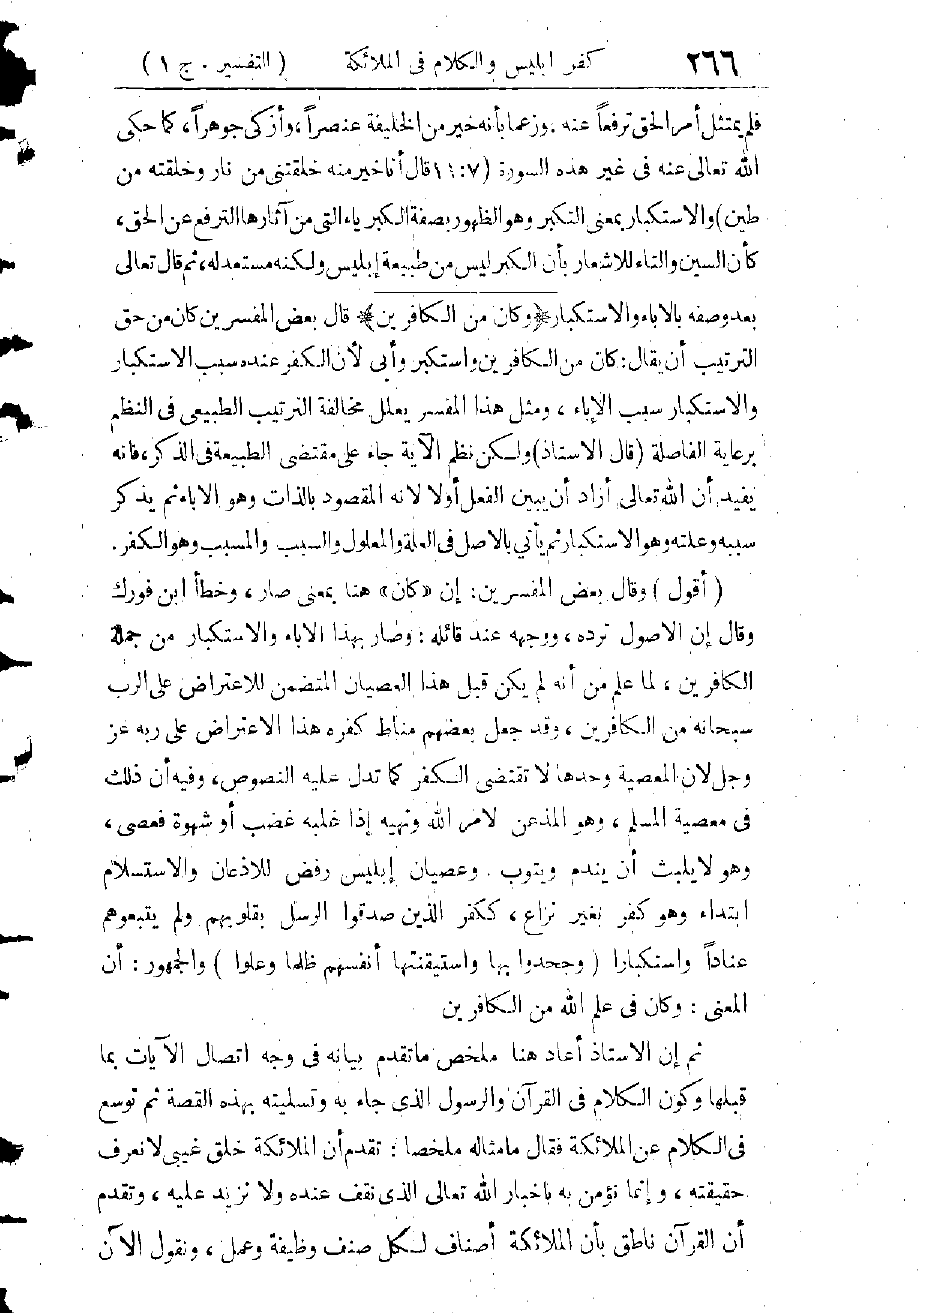 ٢٦٦ كفر ابليس والكلام فى الملائكة ( التفسير . ج ١ )
فلم يمتثل أمر الحق ترفعاً عنه ، وزعما بأنه خير من الخليفة عنصراً ، وأزكى جوهراً ، كما حكى
الله تعالى عنه فى غير هذه السورة ( ٧ : ١١ قال أنا خير منه خلقتنى من نار وخلقته من
طين ) والاستكبار بمعنى التكبر وهو الظهور بصفة الكبرياء التى من آثارها الترفع عن الحق ،
كأن السين والتاء للاشعار بأن الكبر ليس من طبيعة إبليس ولكنه مستعد له ، ثم قال تعالى
بعد وصفه بالاباء والاستكبار ﴿وكان من الكافرين﴾ قال بعض المفسرين كان من حق
الترتيب أن يقال : كان من الكافرين واستكبر وأبى لأن الكفر عنده سبب الاستكبار
والاستكبار سبب الإباء ، ومثل هذا المفسر يعلل مخالفة الترتيب الطبيعى فى النظم
برعاية الفاصلة ( قال الاستاذ ) ولكن نظم الآية جاء على مقتضى الطبيعة فى الذكر ، فانه
يفيد أن الله تعالى أراد أن يبين الفعل أولا لانه المقصود بالذات وهو الاباء ثم يذكر
سببه وعلته وهو الاستكبار ثم يأتي بالاصل فى العلة والمعلول والسبب والمسبب وهو الكفر .
( أقول ) وقال بعض المفسرين : إن «كان» هنا بمعنى صار ، وخطأ ابن فورك
وقال إن الاصول ترده ، ووجهه عند قائله : وصار بهذا الاباء والاستكبار من جملة
الكافرين ، لما علم من أنه لم يكن قبل هذا العصيان المتضمن للاعتراض على الرب
سبحانه من الكافرين ، وقد جعل بعضهم مناط كفره هذا الاعتراض على ربه عز
وجل لان المعصية وحدها لا تقتضى الكفر كما تدل عليه النصوص ، وفيه أن ذلك
فى معصية المسلم ، وهو المذعن لامر الله ونهيه إذا غلبه غضب أو شهوة فعصى ،
وهو لا يلبث أن يندم ويتوب . وعصيان إبليس رفض للاذعان والاستسلام
ابتداء وهو كفر بغير نزاع ، ككفر الذين صدقوا الرسل بقلوبهم ولم يتبعوهم
عناداً واستكبارا ( وجحدوا بها واستيقنتها أنفسهم ظلما وعلوا ) والجمهور : أن
المعنى : وكان فى علم الله من الكافرين
ثم إن الاستاذ أعاد هنا ملخص ماتقدم بيانه فى وجه اتصال الآيات بما
قبلها وكون الكلام فى القرآن والرسول الذى جاء به وتسليته بهذه القصة ثم توسع
فى الكلام عن الملائكة فقال مامثاله ملخصا : تقدم أن الملائكة خلق غيبى لا نعرف
حقيقته ، وإنما نؤمن به باخبار الله تعالى الذى نقف عنده ولا نزيد عليه ، وتقدم
أن القرآن ناطق بأن الملائكة أصناف لكل صنف وظيفة وعمل ، ونقول الآن